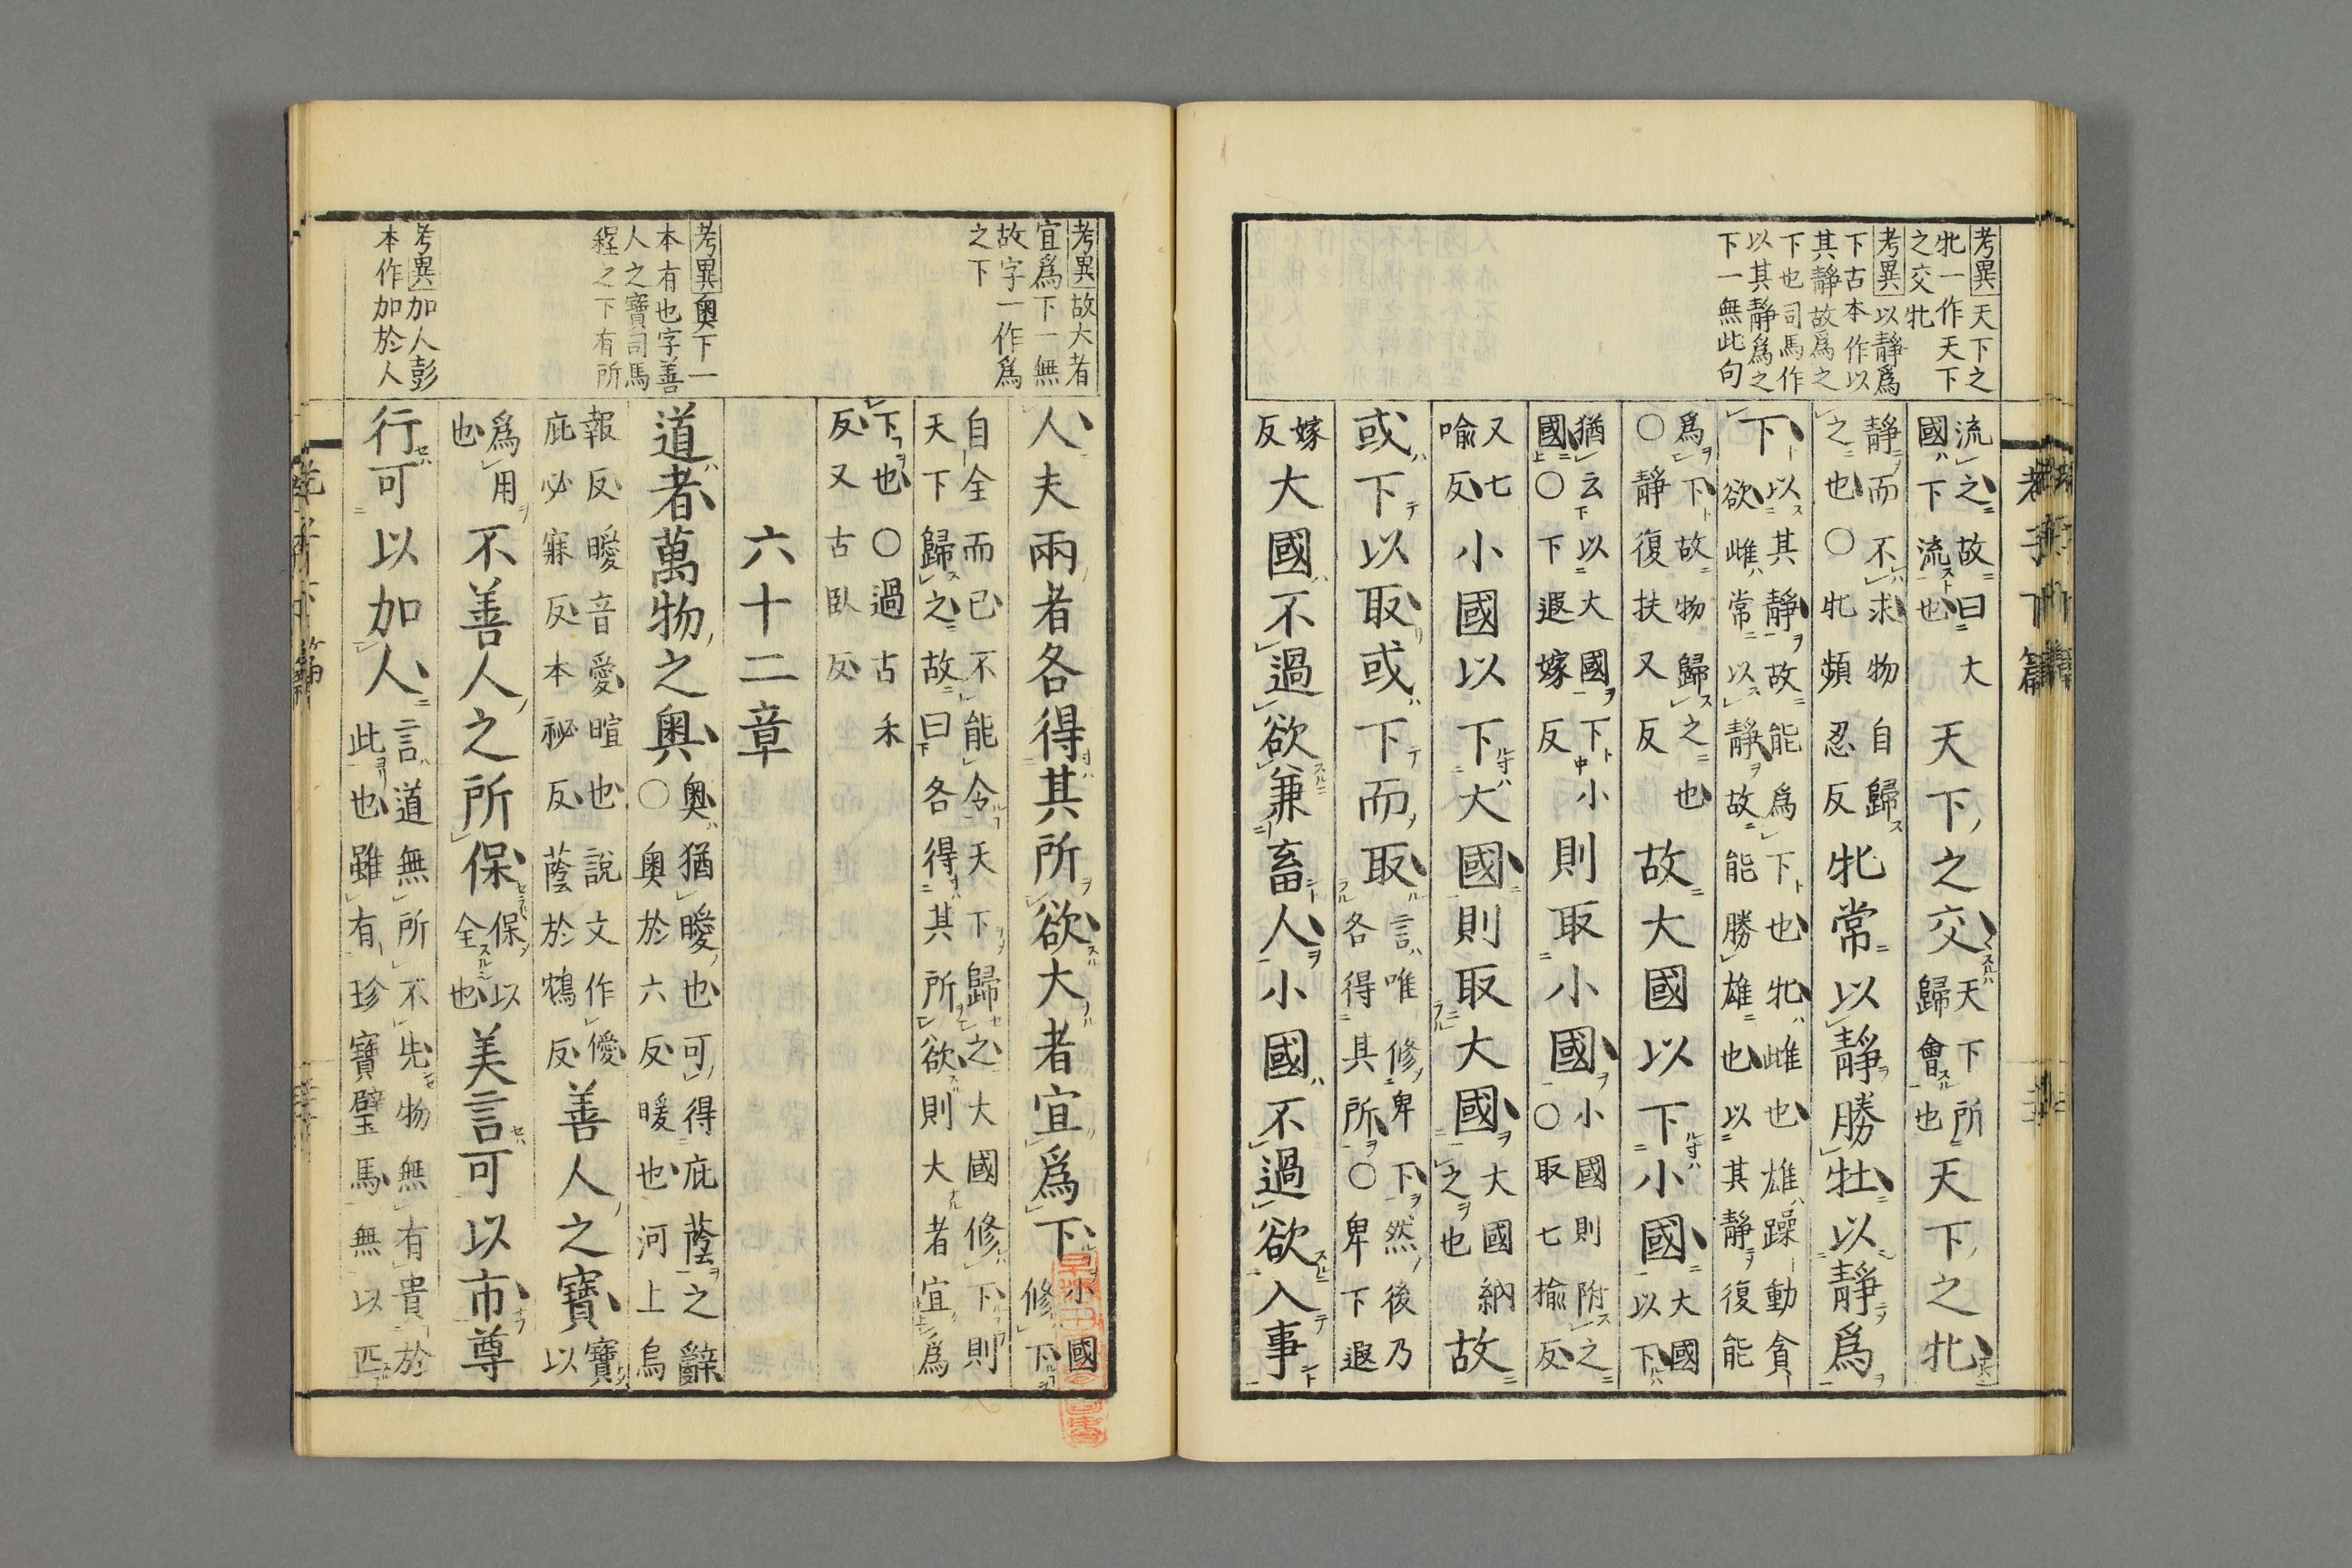 考異天下之
牝一作天下
之交牝
考異以靜爲
下古本作以
其靜故爲之
下也司馬作
以其靜爲之
下一無此句
流之故曰大
國下流也
天下之交
天下所
歸會也
天下之牝
靜而不求物自歸
之也〇牝頻忍反
牝常以靜勝牡以靜爲
下
以其靜故能爲下也牝雌也雄躁動貪
欲雌常以靜故能勝雄也以其靜復能
爲下故物歸之也
〇靜復扶又反
故大國以下小國
大國
以下
猶云以大國下小
國〇下遐嫁反
則取小國
小國則附之
〇取七揄反
又七
喩反
小國以下大國則取大國
大國納
之也
故
或下以取或下而取
言唯修卑下然後乃
各得其所〇卑下遐
嫁
反
大國不過欲兼畜人小國不過欲入事
老子下篇
考異故大者
宜爲下一無
故字一作爲
之下
考異奧下一
本有也字善
人之寶司馬
程之下有所
考異加人彭
本作加於人
人夫兩者各得其所欲大者宜爲下
小國
修下
自全而已不能令天下歸之大國修下則
天下歸之故曰各得其所欲則大者宜爲
下也〇過古禾
反又古臥反
六十二章
道者萬物之奧
奧猶曖也可得庇蔭之辭
〇奧於六反暖也河上烏
報反曖音愛暄也說文作僾
庇必寐反本祕反蔭於鴆反
善人之寶
寶
以
爲用
也
不善人之所保
保以
全也
美言可以市尊
行可以加人
言道無所不先物無有貴於
此也雖有珍寶璧馬無以匹